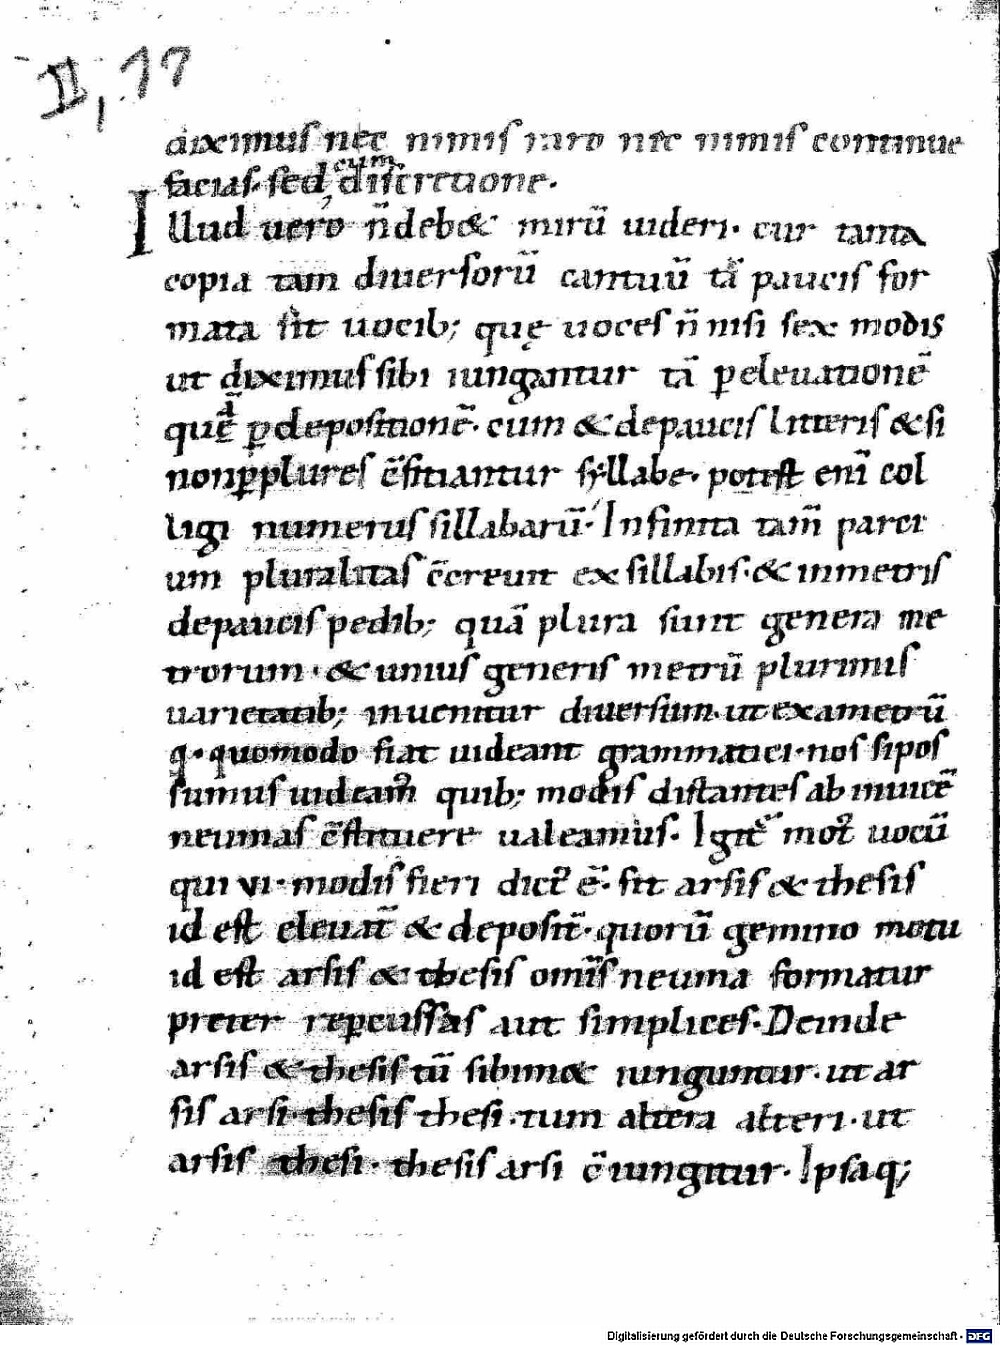 II, 17
diximus nec nimis raro nec nimis continue
facias. sed, cum discretione.
Illud uero ñ deb& mirũ uideri. cur tanta
copia tam diuersorũ cantuũ tã paucis for
mata sit uocib; quę uoces ñ nisi sex modis
ut diximus sibi iungantur tã ꝑ eleuationẽ
quã ꝑ depositionẽ. cum & de paucis litteris & si
non ꝑplures c̃fitiantur syllabe. potest eni̅ col
ligi numerus sillabarũ. Infinita tam̃ parti
um pluralitas c̃creuit ex sillabis. & in metris
de paucis pedib; quã plura sunt genera me
trorum. & unius generis metrũ plurimis
uarietatib; inuenitur diuersum. ut exametrũ
q. quomodo fiat uideant grammatici. nos si pos
sumus uideam᷒ quib; modis distantes ab inuicẽ
neumas c̃stituere ualeamus. Igit᷒ mot᷒ uocũ
qui vi. modis fieri dict᷒ ẽ. fit arsis & thesis
id est eleuat̃ & deposit̃. quorũ gemino motu
id est arsis & thesis omi̅s neuma formatur
preter repercussas aut simplices. Deinde
arsis & thesis tũ sibim& iunguntur. ut ar
sis arsi. thesis thesi. tum altera alteri. ut
arsis thesi. thesis arsi c̃iungitur. Ipsaq;
Digitalisierung gefördert durch die Deutsche Forschungsgemeinschaft - DFG